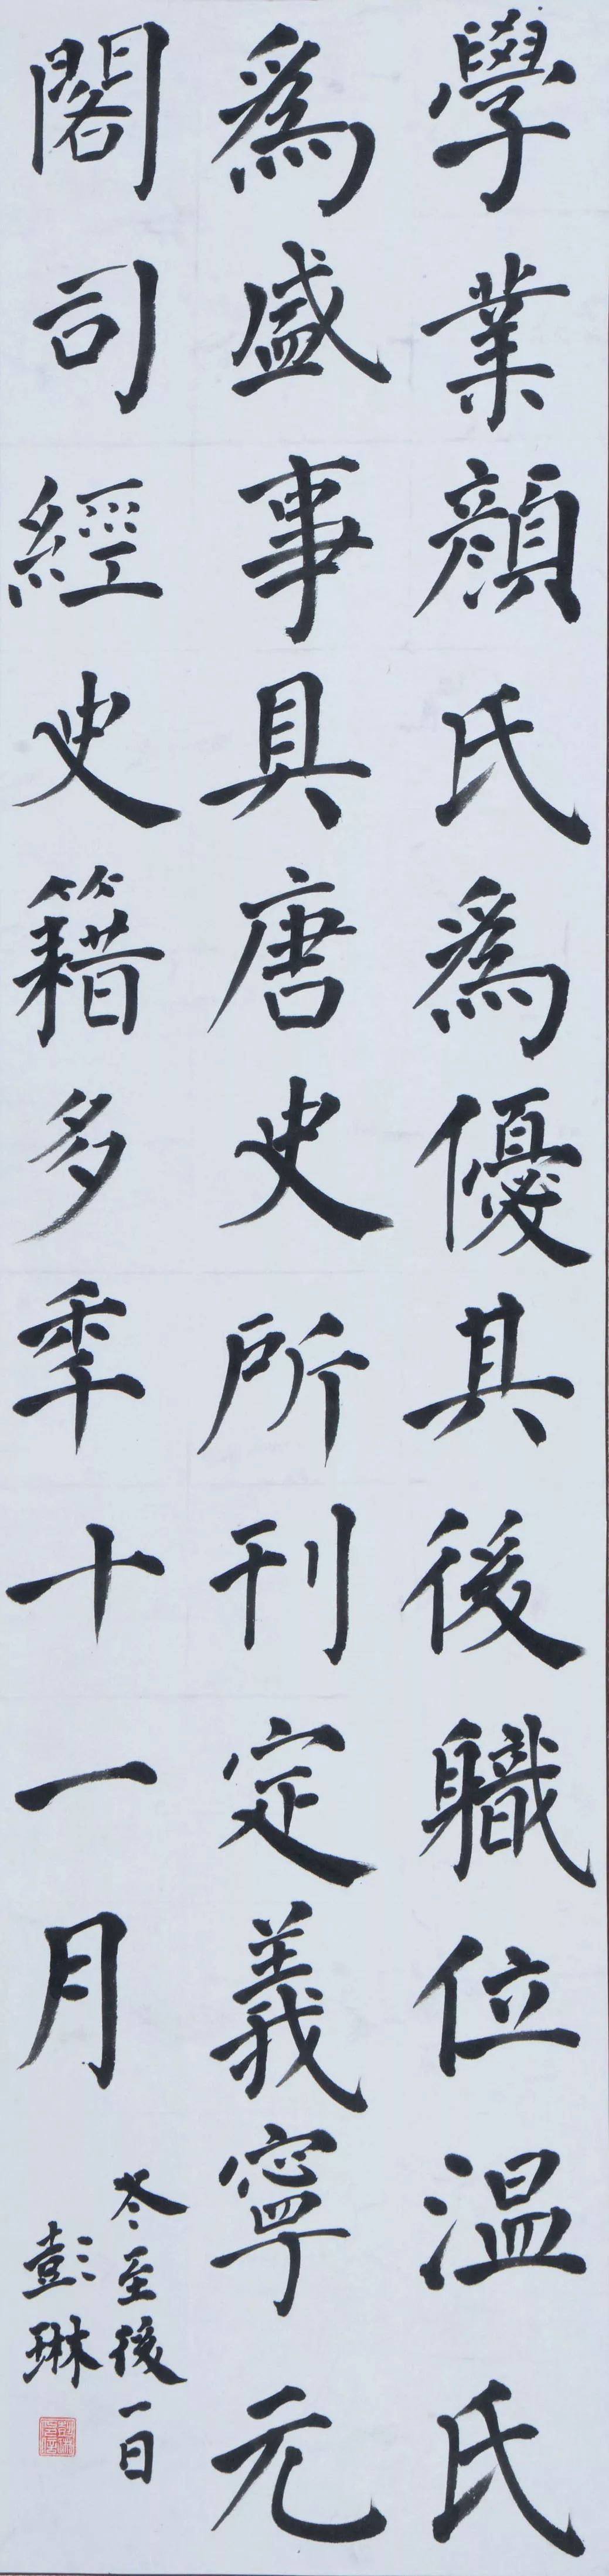 學業顏氏為優其後職位溫氏
為盛事具唐史所刊定義寧元
閣司經史籍多季十一月
冬至後一日
彭琳